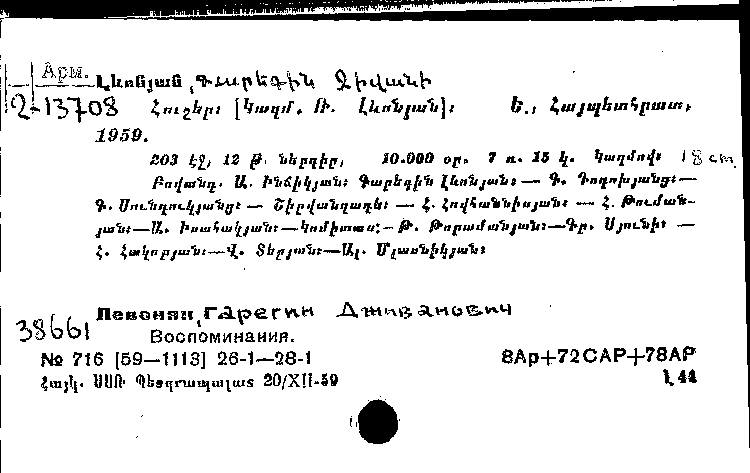 Арм.
Լևոնյան, Գարեգին Ջիվանի
2-13708 Հուշեր: [Կազմ. Թ. Լևոնյան]: Ե., Հայպետհրատ,
1959.
203 էջ, 12 թ. ներդիր, 10.000 օր. 7 ռ. 15 կ. Կազմով: 18 cm
Բովանդ. Ա. Ինճիկյան: Գարեգին Լևոնյան: — Գ.
Գ. Սունդուկյանց: — Շիրվանզադե: — Հ. Հովհաննիսյան: — Հ. Թուման-
յան:—Ա. Իսահակյան:—Կոմիտաս:—Թ. Թորամանյան:—Գր. Սյունի: —
Հ. Հակոբյան:—Վ. Տերյան:—Ալ. Մյասնիկյան:
Левонян, Гарегин Дживанович
38661
Воспоминания.
№ 716 [59—1113] 26-1—28-1 8Ар+72САР+78АР
Հայկ. ՍՍՌ Պետգրապալատ 20/XII-59 1,44